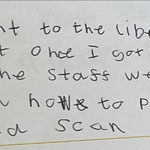 nt to the libr
t once I got
he staff we
how to p
d scan